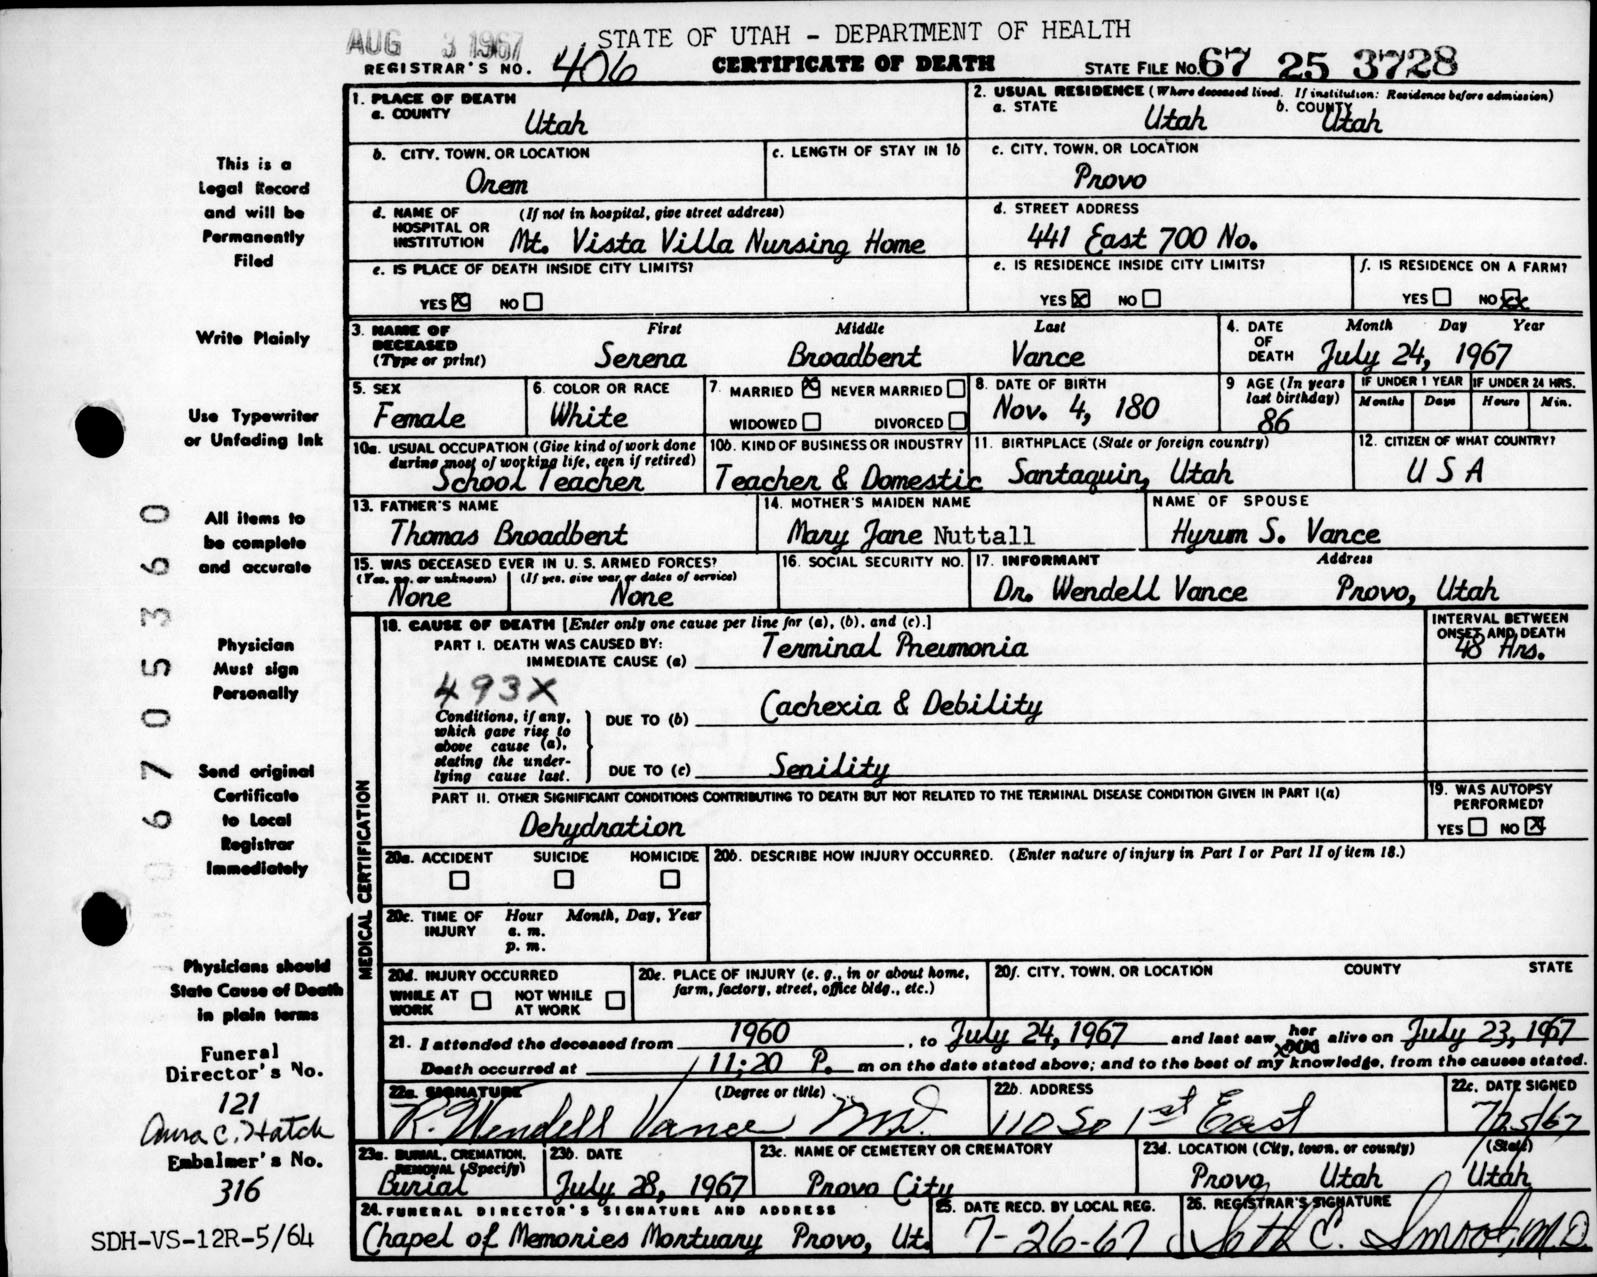 AUG 3 1967
STATE OF UTAH - DEPARTMENT OF HEALTH
REGISTRAR'S NO. 406 CERTIFICATE OF DEATH STATE FILE NO. 67 25 3728
This is a
Legal Record
and will be
Permanently
Filed
Write Plainly
Use Typewriter
or Unfading Ink
All items to
be complete
and accurate
Physician
Must sign
Personally
Send original
Certificate
to Local
Registrar
Immediately
Physicians should
State Cause of Death
in plain terms
Funeral
Director's No.
121
Embalmer's No.
316
SDH-VS-12R-5/64
6705360
1. PLACE OF DEATH
a. COUNTY
Utah
2. USUAL RESIDENCE (Where deceased lived. If institution: Residence before admission)
a. STATE b. COUNTY
Utah Utah
b. CITY, TOWN, OR LOCATION
Orem
c. LENGTH OF STAY IN 1b
c. CITY, TOWN, OR LOCATION
Provo
d. NAME OF (If not in hospital, give street address)
HOSPITAL OR
INSTITUTION Mt. Vista Villa Nursing Home
d. STREET ADDRESS
441 East 700 No.
e. IS PLACE OF DEATH INSIDE CITY LIMITS?
YES NO
e. IS RESIDENCE INSIDE CITY LIMITS?
YES NO
f. IS RESIDENCE ON A FARM?
YES NO
3. NAME OF First Middle Last
DECEASED
(Type or print) Serena Broadbent Vance
4. DATE Month Day Year
OF
DEATH July 24, 1967
5. SEX
Female
6. COLOR OR RACE
White
7. MARRIED NEVER MARRIED
WIDOWED DIVORCED
8. DATE OF BIRTH
Nov. 4, 180
9 AGE (In years
last birthday)
86
IF UNDER 1 YEAR IF UNDER 24 HRS.
Months Days Hours Min.
10a. USUAL OCCUPATION (Give kind of work done
during most of working life, even if retired)
School Teacher
10b. KIND OF BUSINESS OR INDUSTRY
Teacher & Domestic
11. BIRTHPLACE (State or foreign country)
Santaquin, Utah
12. CITIZEN OF WHAT COUNTRY?
U S A
13. FATHER'S NAME
Thomas Broadbent
14. MOTHER'S MAIDEN NAME
Mary Jane Nuttall
NAME OF SPOUSE
Hyrum S. Vance
15. WAS DECEASED EVER IN U. S. ARMED FORCES?
(Yes, no, or unknown) (If yes, give war or dates of service)
None None
16. SOCIAL SECURITY NO.
17. INFORMANT Address
Dr. Wendell Vance Provo, Utah
MEDICAL CERTIFICATION
18. CAUSE OF DEATH [Enter only one cause per line for (a), (b), and (c).]
INTERVAL BETWEEN
ONSET AND DEATH
PART I. DEATH WAS CAUSED BY:
IMMEDIATE CAUSE (a) Terminal Pneumonia 48 Hrs.
493X
Conditions, if any,
which gave rise to
above cause (a),
stating the under-
lying cause last.
DUE TO (b) Cachexia & Debility
DUE TO (c) Senility
PART II. OTHER SIGNIFICANT CONDITIONS CONTRIBUTING TO DEATH BUT NOT RELATED TO THE TERMINAL DISEASE CONDITION GIVEN IN PART I(a)
Dehydration
19. WAS AUTOPSY
PERFORMED?
YES NO
20a. ACCIDENT SUICIDE HOMICIDE
20b. DESCRIBE HOW INJURY OCCURRED. (Enter nature of injury in Part I or Part II of item 18.)
20c. TIME OF Hour Month, Day, Year
INJURY a. m.
p. m.
20d. INJURY OCCURRED
WHILE AT NOT WHILE
WORK AT WORK
20e. PLACE OF INJURY (e. g., in or about home,
farm, factory, street, office bldg., etc.)
20f. CITY, TOWN, OR LOCATION COUNTY STATE
21. I attended the deceased from 1960, to July 24, 1967 and last saw her alive on July 23, 1967
Death occurred at 11:20 P. m on the date stated above; and to the best of my knowledge, from the causes stated.
22a. SIGNATURE (Degree or title)
R. Wendell Vance M.D.
22b. ADDRESS
110 So 1st East
22c. DATE SIGNED
7/25/67
23a. BURIAL, CREMATION,
REMOVAL (Specify)
Burial
23b. DATE
July 28, 1967
23c. NAME OF CEMETERY OR CREMATORY
Provo City
23d. LOCATION (City, town, or county) (State)
Provo, Utah Utah
24. FUNERAL DIRECTOR'S SIGNATURE AND ADDRESS
Chapel of Memories Mortuary Provo, Ut.
25. DATE RECD. BY LOCAL REG.
7-26-67
26. REGISTRAR'S SIGNATURE
Seth C. Smoot, M.D.